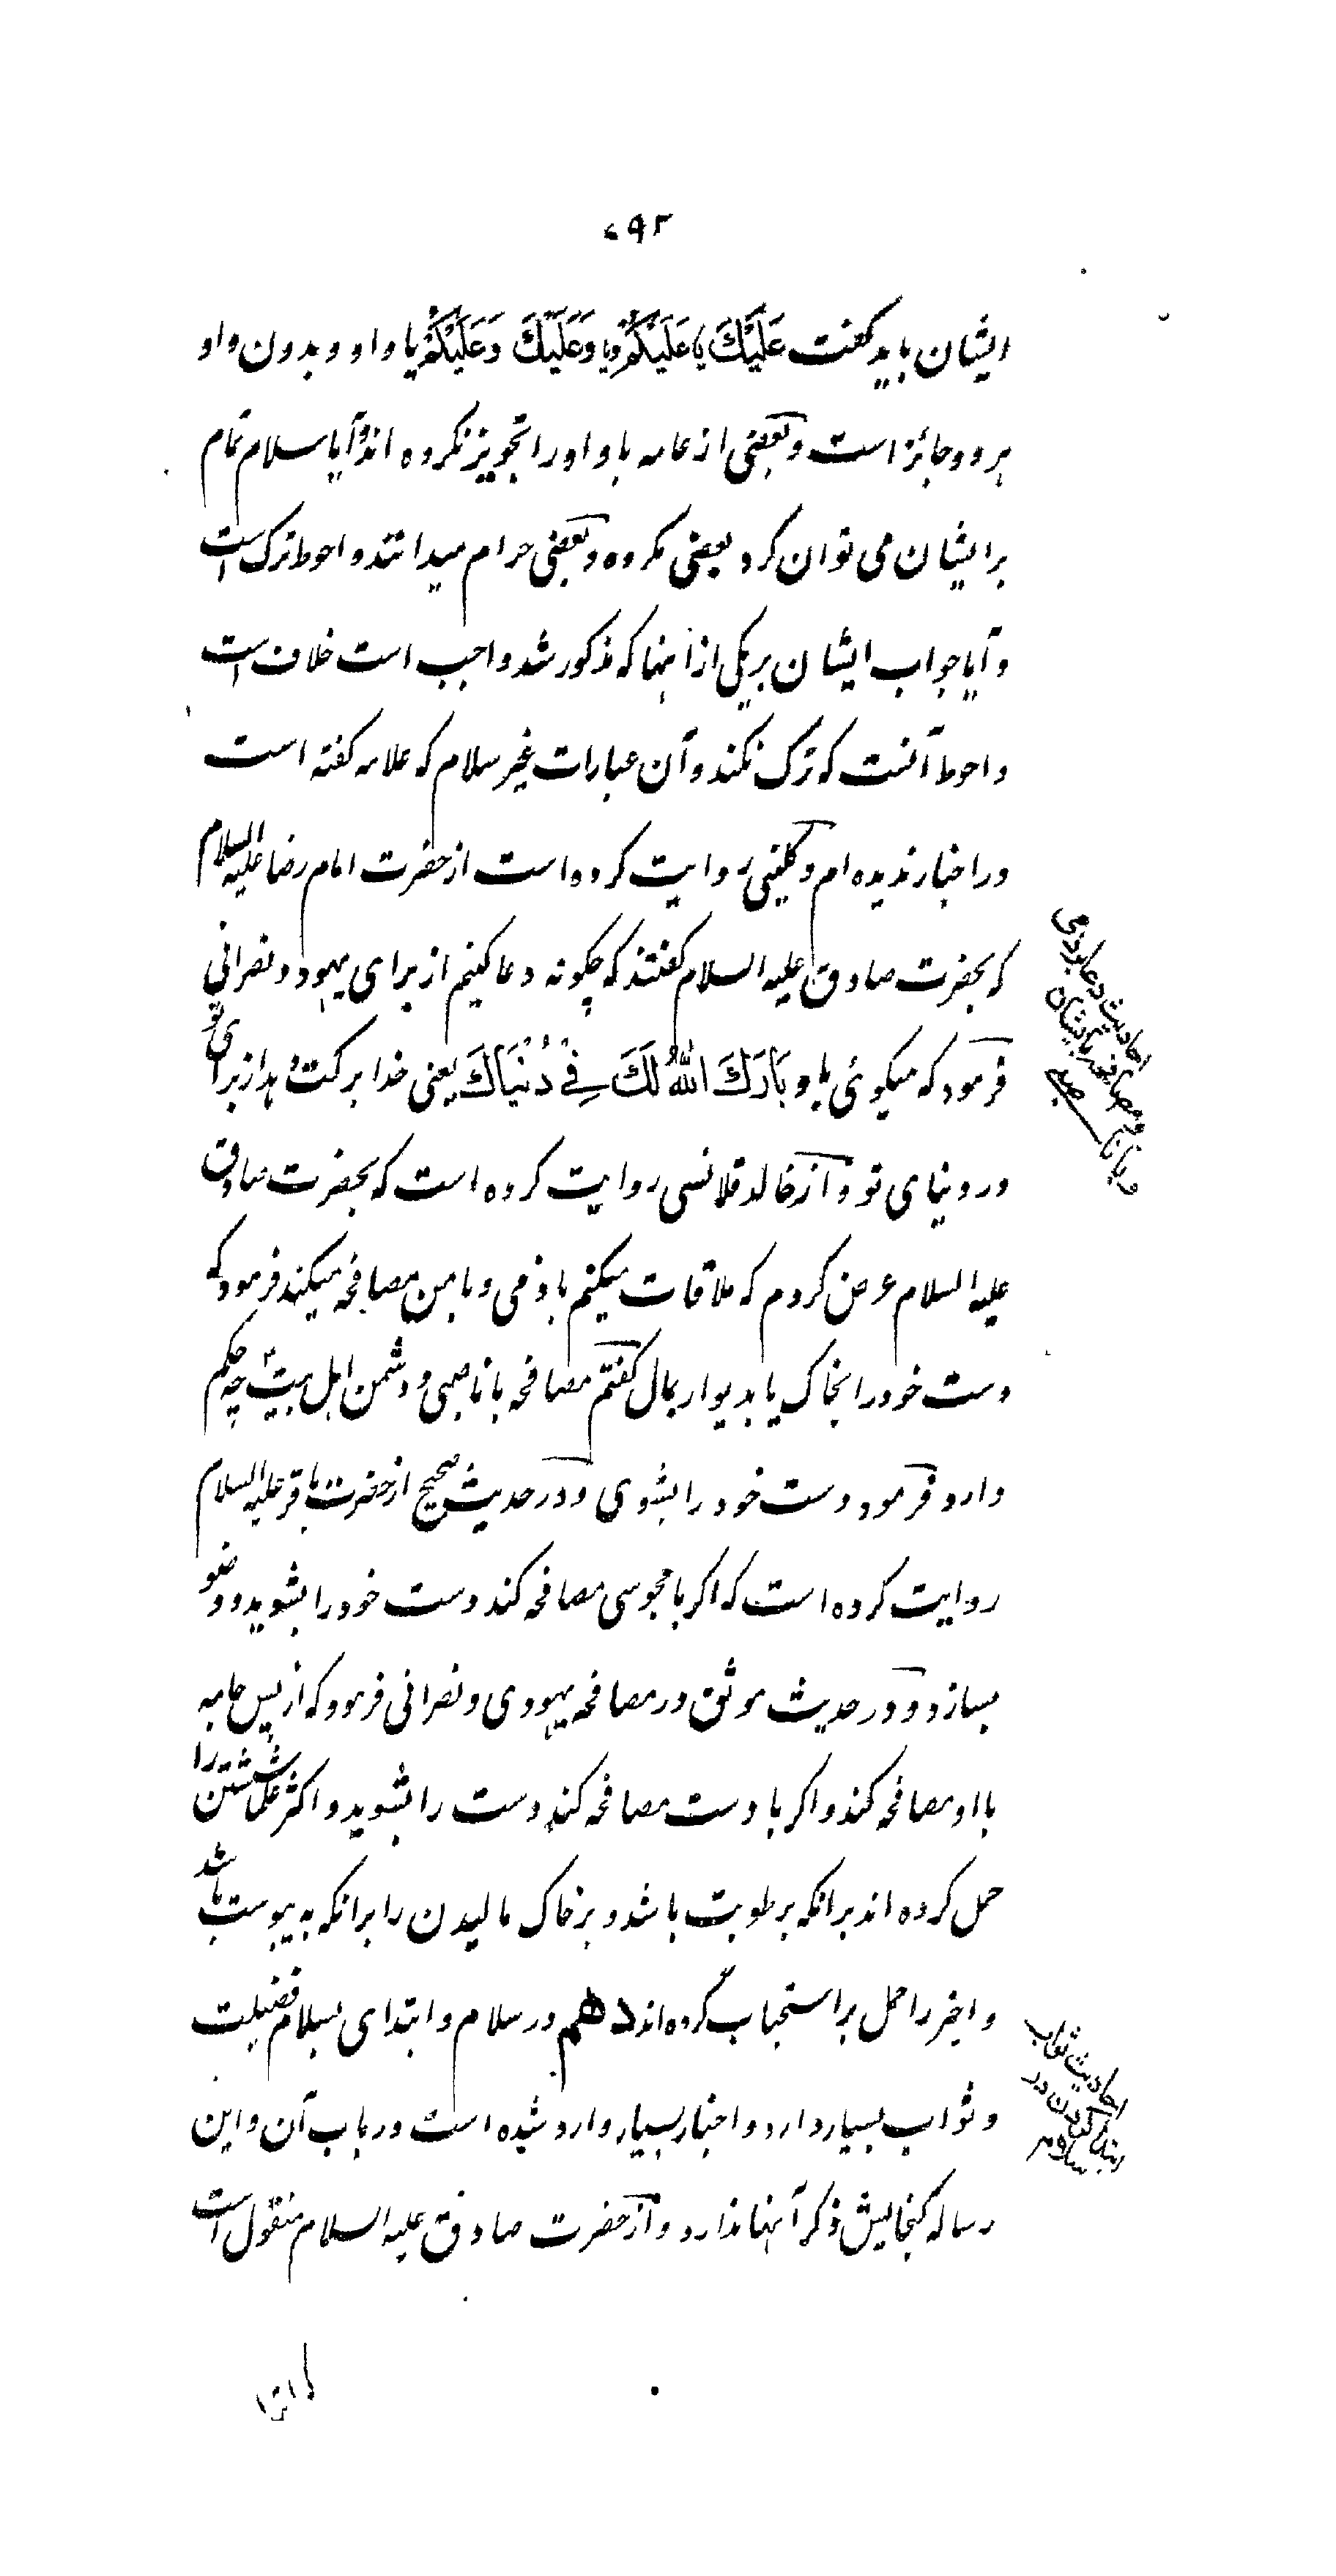 ۲۹۲
ایشان باید کفت عَلَیْكَ یا عَلَیْکُمْ ویا وَعَلَیْكَ وَعَلَیْکُمْ یا واو و بدون واو
هر دو جائز است و بعضی از عامه با واو را تجویز نکرده اند و آیا سلام تمام
بر ایشان می توان کرد بعضی مکروه و بعضی حرام میدانند و احوط ترک است
و آیا جواب ایشان بر یکی از آنها که مذکور شد واجب است خلاف است
و احوط آنست که ترک نکند و آن عبارات غیر سلام که علامه کفته است
در اخبار ندیده ام و کلینی روایت کرده است از حضرت امام رضا علیه السلام
که بحضرت صادق علیه السلام کفتند که چکونه دعا کنیم از برای یهود و نصرانی
فرمود که میکوئی باو بَارَكَ اللهُ لَكَ فِیْ دُنْیَاكَ یعنی خدا برکت دهد از برای تو
در دنیای تو و از خالد قلانسی روایت کرده است که بحضرت صادق
علیه السلام عرض کردم که ملاقات میکنم با ذمی و با من مصافحه میکند فرمود که
دست خود را بخاک یا بدیوار بمال کفتم مصافحه با ناصبی و دشمن اهل بیت چه حکم
دارد فرمود دست خود را بشوی و در حدیث صحیح از حضرت باقر علیه السلام
روایت کرده است که اکر با مجوسی مصافحه کند دست خود را بشوید و وضو
بسازد و در حدیث موثق در مصافحه یهودی و نصرانی فرمود که از پس جامه
با او مصافحه کند و اکر با دست مصافحه کند دست را بشوید و اکثر علما شستن را
حمل کرده اند بر انکه برطوبت باشد و بر خاک مالیدن را بر انکه به یبوست باشد
و اخیر را حمل بر استحباب کرده اند دهم در سلام و ابتدای بسلام فضیلت
و ثواب بسیار دارد و اخبار بسیار وارد شده است در باب آن و این
رساله کنجایش ذکر آنها ندارد و از حضرت صادق علیه السلام منقول است
احادیث دعا بر ذمی
و مصافحه با ایشان
و با ناصبی
احادیث ثواب
ابتدا کردن در
سلام